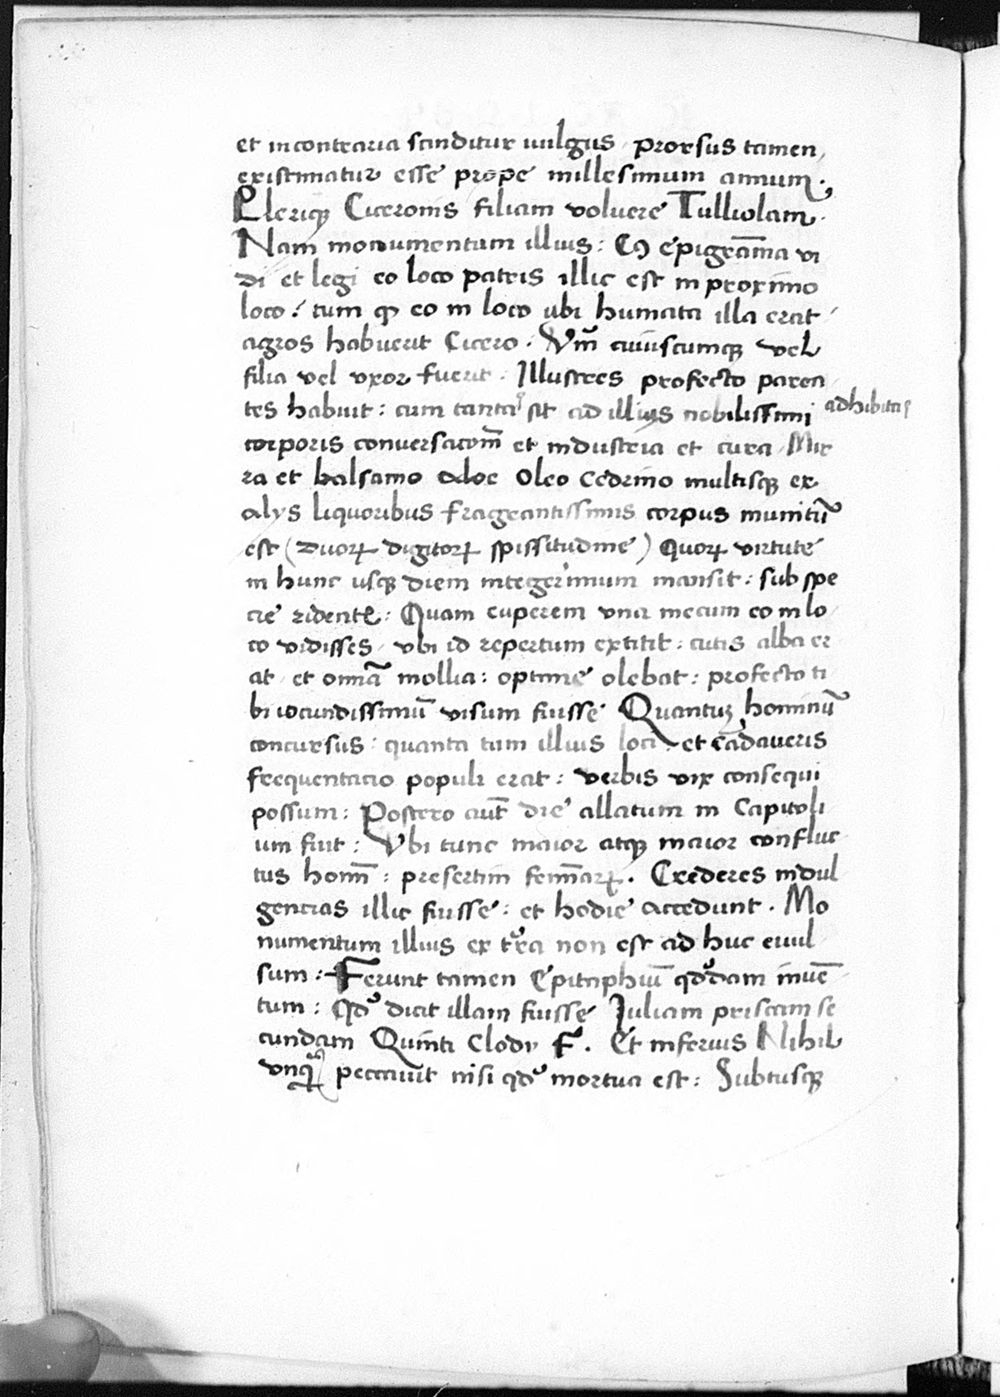 et in contraria scinditur vulgus. prorsus tamen,
existimatur esse prope millesimum annum.;
Pleriq; Ciceronis filiam voluere Tulliolam.
Nam monumentum illius: Cꝯ epigrāma vi
di et legi eo loco patris illic est in proximo
loco: tum ꝙ eo in loco ubi humata illa erat
agros habuerit Cicero. Vm̃ cuiuscumq; vel
filia vel uxor fuerit. Illustres profecto paren
tes habuit: cum tanta sit ad illius nobilissimi adhibita
corporis conversacom̃ et industria et cura. Mir
ra et balsamo aloe Oleo Cedrino multisq; ex
alys liquoribus fragrantissimis corpus munitũ
est (duoꝝ digitoꝝ spissitudine) Quoꝝ virtute
in hunc usq; diem integerrimum mansit: sub spe
cie ridentꝭ: Quam cuperem una mecum eo in lo
co vidisses, ubi id repertum extitit: cutis alba er
at et omĩa mollia: optime olebat: profecto ti
bi iocundissimũ visum fuisse Quantuꝫ hominũ
concursus: quanta tum illius loci et cadaveris
frequentacio populi erat: verbis vix consequi
possum: Postero aut̃ die allatum in Capitoli
um fuit: Vbi tunc maior atq; maior confluc
tus homĩ: presertim femĩaꝝ. Crederes indul
gencias illic fuisse: et hodie accedunt. Mo
numentum illius ex tẽra non est ad huc evul
sum: Ferunt tamen Epitaphiũ qddam invē
tum: Qd dicit illam fuisse Juliam priscam se
cundam Quinti Clody F. Et inferius Nihil
vnq̃ peccavit nisi qd mortua est: Subtusq;